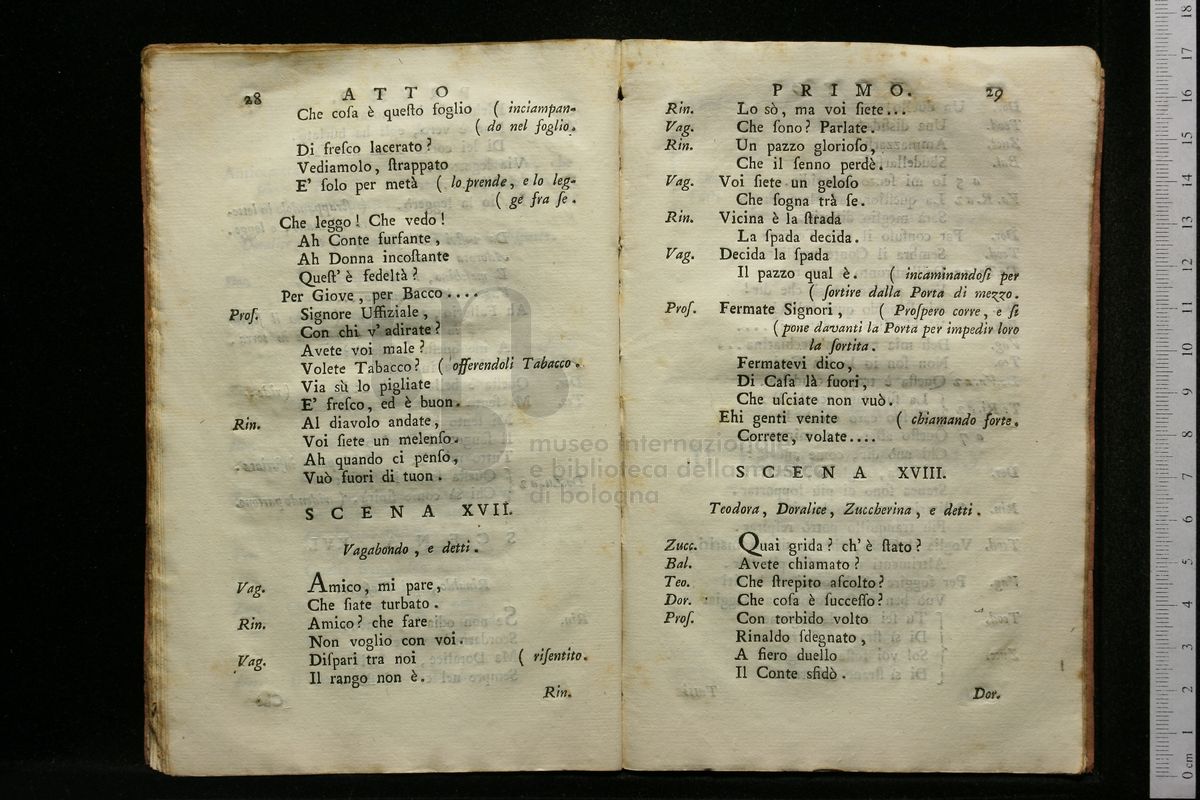 28 ATTO
Che coſa è queſto foglio ( inciampan-
( do nel foglio.
Di freſco lacerato?
Vediamolo, ſtrappato
E' ſolo per metà ( lo prende, e lo leg-
( ge fra ſe.
Che leggo! Che vedo!
Ah Conte furfante,
Ah Donna incoſtante
Queſt' è fedeltà?
Per Giove, per Bacco....
Proſ. Signore Uffiziale,
Con chi v' adirate?
Avete voi male?
Volete Tabacco? ( offerendoli Tabacco.
Via sù lo pigliate
E' freſco, ed è buon.
Rin. Al diavolo andate,
Voi ſiete un melenſo.
Ah quando ci penſo,
Vuò fuori di tuon.
SCENA XVII.
Vagabondo, e detti.
Vag. Amico, mi pare,
Che ſiate turbato.
Rin. Amico? che fare
Non voglio con voi.
Vag. Diſpari tra noi ( riſentito.
Il rango non è.
Rin.
PRIMO. 29
Rin. Lo sò, ma voi ſiete...
Vag. Che ſono? Parlate.
Rin. Un pazzo glorioſo,
Che il ſenno perdè.
Vag. Voi ſiete un geloſo
Che ſogna trà ſe.
Rin. Vicina è la ſtrada
La ſpada decida.
Vag. Decida la ſpada
Il pazzo qual è. ( incaminandoſi per
( ſortire dalla Porta di mezzo.
Proſ. Fermate Signori, ( Proſpero corre, e ſi
( pone davanti la Porta per impedir loro
la ſortita.
Fermatevi dico,
Di Caſa là fuori,
Che uſciate non vuò.
Ehi genti venite ( chiamando forte.
Correte, volate....
SCENA XVIII.
Teodora, Doralice, Zuccherina, e detti.
Zucc. Quai grida? ch' è ſtato?
Bal. Avete chiamato?
Teo. Che ſtrepito aſcolto?
Dor. Che coſa è ſucceſſo?
Proſ. Con torbido volto
Rinaldo ſdegnato,
A fiero duello
Il Conte sfidò.
Dor.
museo internazionale
e biblioteca della musica
di bologna
0 cm 1 2 3 4 5 6 7 8 9 10 11 12 13 14 15 16 17 18